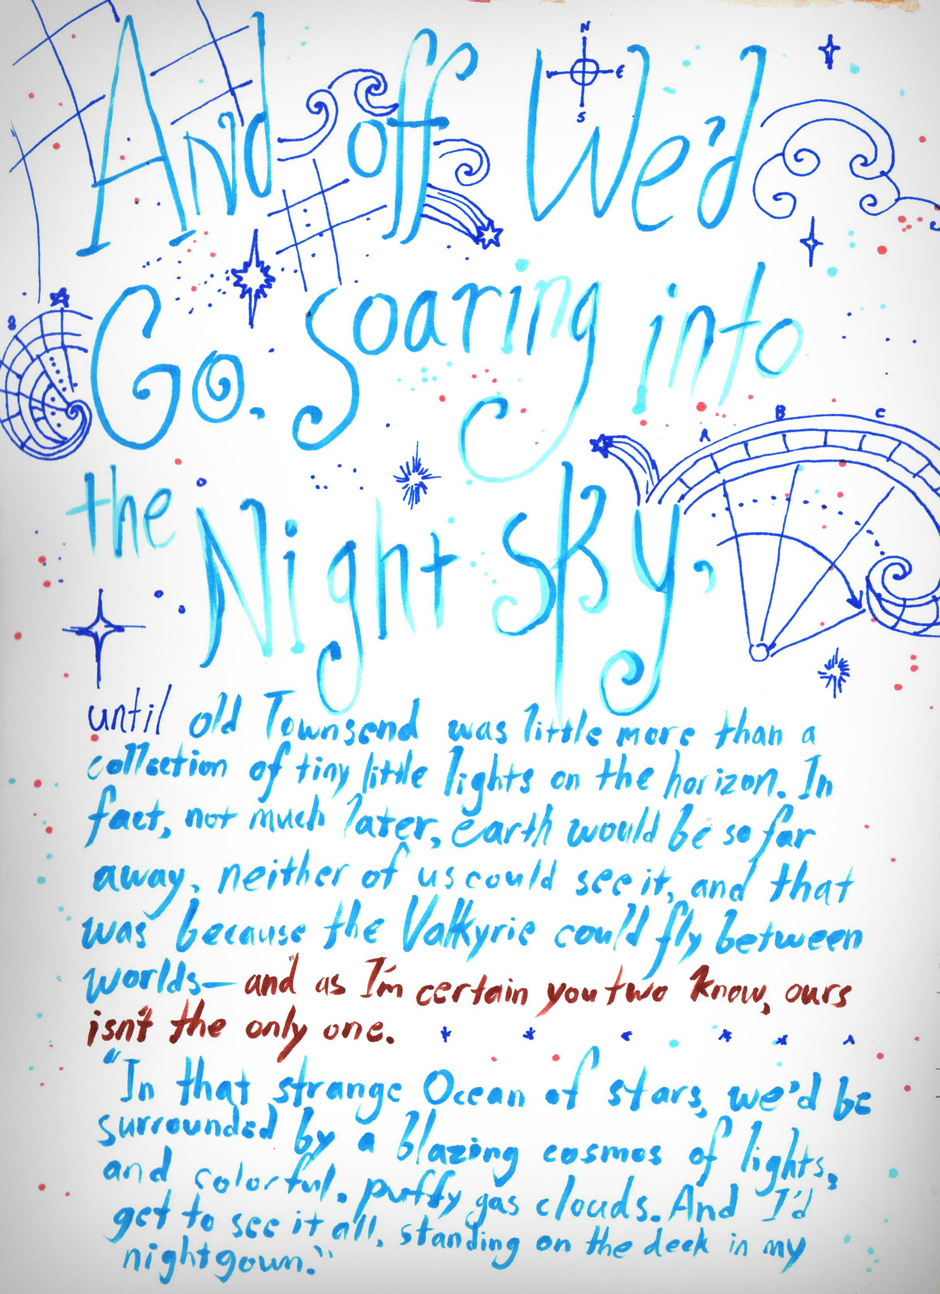 N
W E
S
And off We'd
Go, Soaring into
the Night Sky,
B
A B C
until old Townsend was little more than a
collection of tiny little lights on the horizon. In
fact, not much later, earth would be so far
away, neither of us could see it, and that
was because the Valkyrie could fly between
worlds—and as I'm certain you two know, ours
isn't the only one.
"In that strange Ocean of stars, we'd be
surrounded by a blazing cosmos of lights,
and colorful, puffy gas clouds. And I'd
get to see it all, standing on the deck in my
nightgown."